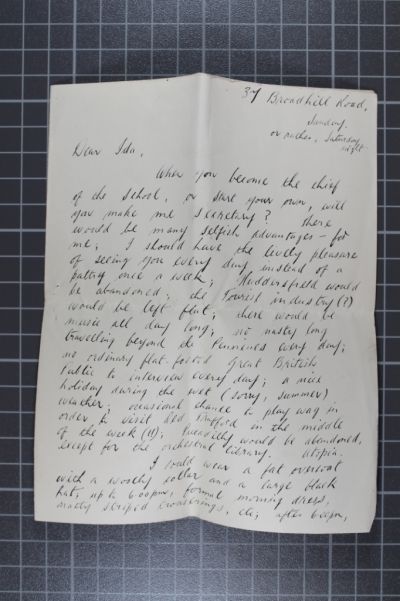 37 Broadhill Road,
Sunday.
or rather, Saturday
night.
Dear Ida,
When you become the chief
of the school, or start your own, will
you make me secretary? There
would be many selfish advantages – for
me; I should have the lively pleasure
of seeing you every day instead of a
paltry once a week; Huddersfield would
be abandoned; the Tourist industry (?)
would be left flat; there would be
music all day long; no nasty long
travelling beyond the Pennines every day;
no ordinary flat footed Great British
Public to interview every day; a nice
holiday during the wet (sorry, summer)
weather; occasional chance to play wag in
order to visit Old Trafford in the middle
of the week (!!); Piccadilly would be abandoned,
except for the orchestral library. Utopia.
I could wear a fat overcoat
with a woolly collar and a large black
hat; up to 6oopm, formal morning dress,
natty striped trouserings, etc; after 6oopm,